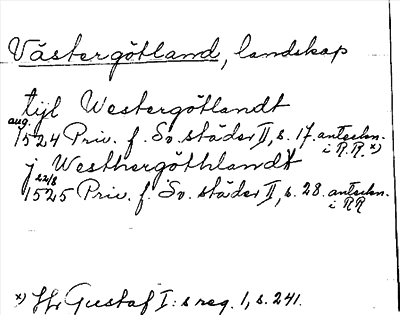 Västergötland, landskap
tijl Westergötlandt
aug.
1524 Priv. f. Sv. städer II, s. 17. anteckn.
i R.R. x)
j Westhergöthlandt
22/8
1525 Priv. f. Sv. städer II, s. 28. anteckn.
i RR
x) Gustaf I:s reg. 1, s. 241.